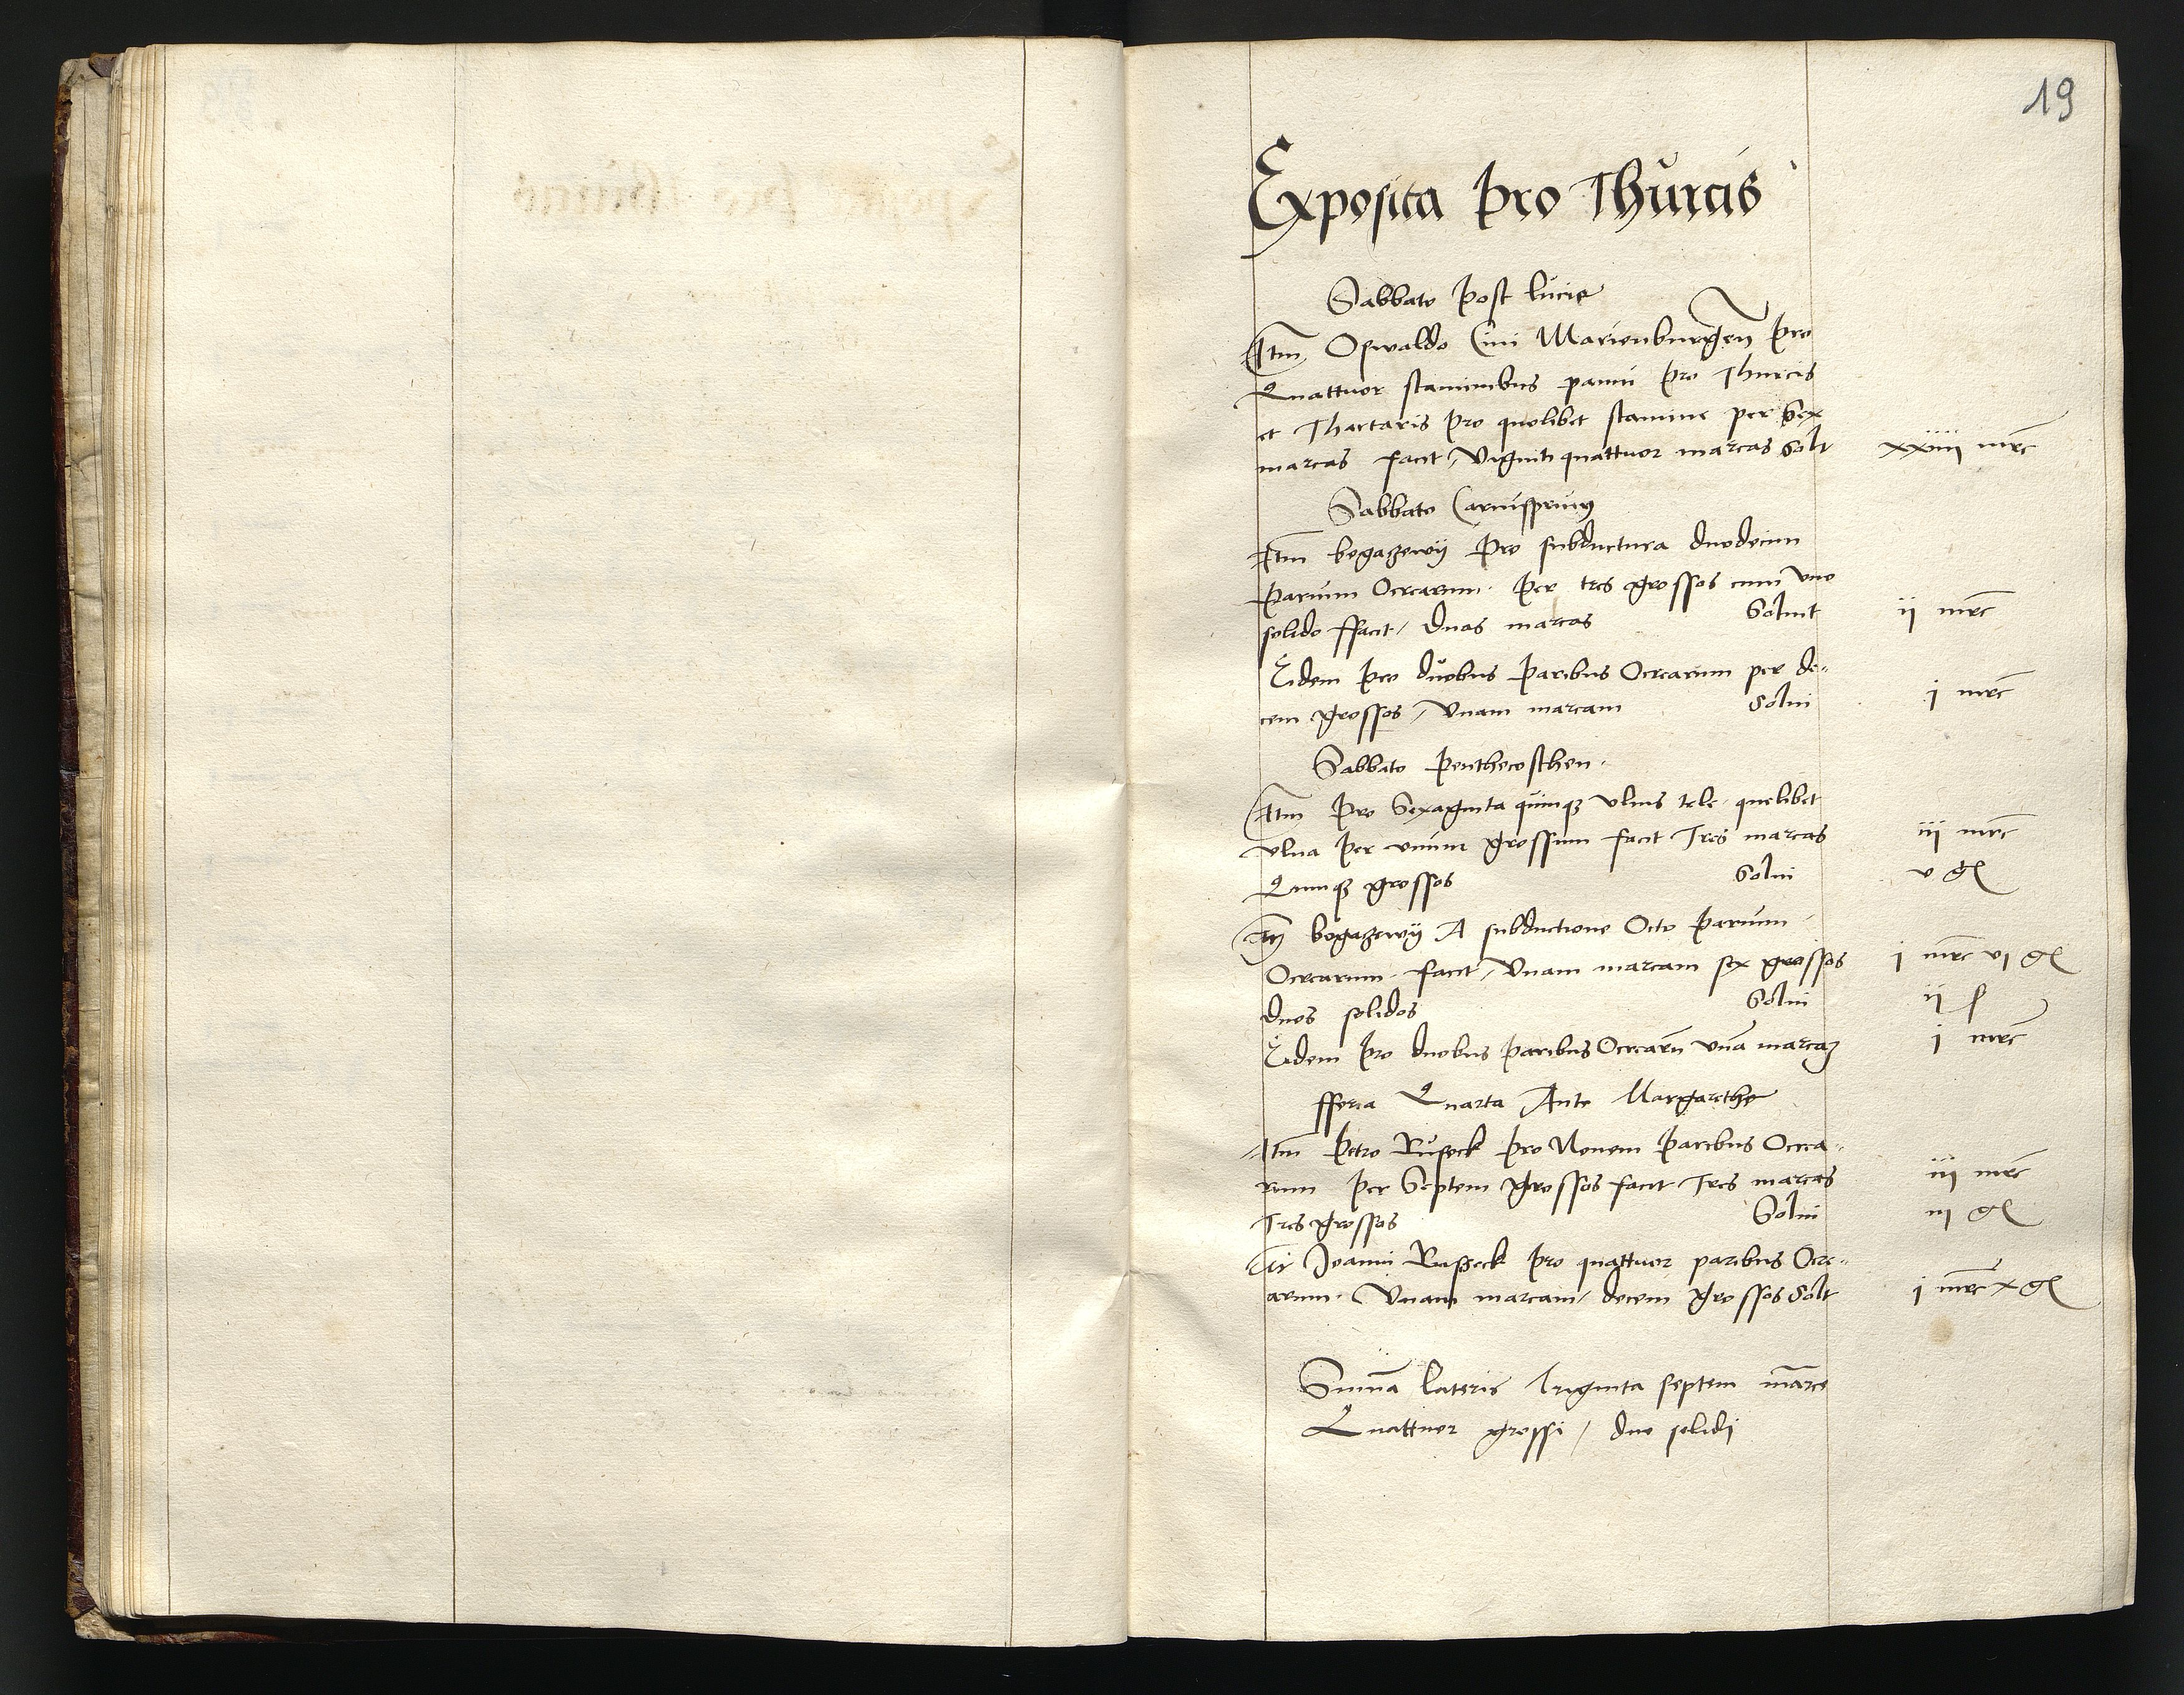 19
Exposita pro Thurcis
Sabbato post lucie
Itm Oswaldo Civi Marienburgen pro
Quattuor staminibus panni pro Thurcis
et Thartaris pro quolibet stamine per Sex
marcas facit / Viginti quattuor marcas Solt xxiiii mrc
Sabbato Carnisprivy
Itm bogazewij Pro subductura duodecim
Parium Ocrearum per tres grossos cum uno
solido ffacit / Duas marcas Soluit ij mrc
Eidem pro duobus Paribus Ocrearum per de-
cem grossos / Vnam marcam Solui j mrc
Sabbato Penthecosthen
Itm Pro Sexaginta quinqz vlnis tele quelibet
vlna per vnum grossum facit Tres marcas iij mrc
Quinqz grossos Solui v gl
Itm bogazewij A subductione Octo Parium
Ocrearum facit / Vnam marcam sex grossos j mrc vj gl
duos solidos Solui ij s
Eidem pro duobus paribus Ocrearu vna marcaz j mrc
fferia Quarta Ante Margarethe
Itm Petro Ruseck pro Nouem Paribus Ocrea-
rum per Septem grossos facit Tres marcas iij mrc
Tres grossos Solui iij gl
It Joanni Russeck pro quattuor paribus Ocre-
arum Vnam marcam / decem grossos Solt j mrc x gl
Suma lateris Triginta septem marce
Quattuor grossi / duo solidi